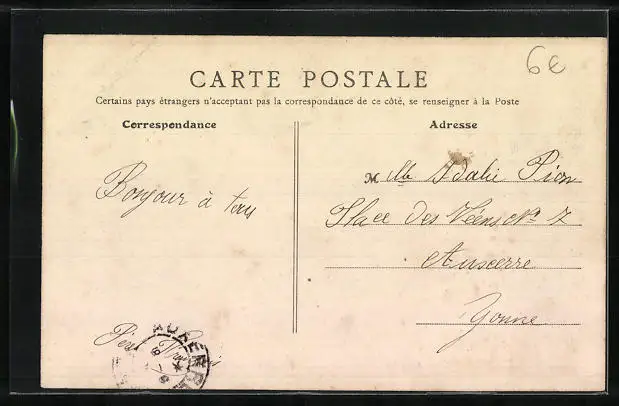 6€
CARTE POSTALE
Certains pays étrangers n'acceptant pas la correspondance de ce côté, se renseigner à la Poste
Correspondance
Adresse
Bonjour à tous
M lle Idalie Pion
Place des Véens Nº 7
Auxerre
Yonne
AUXERRE